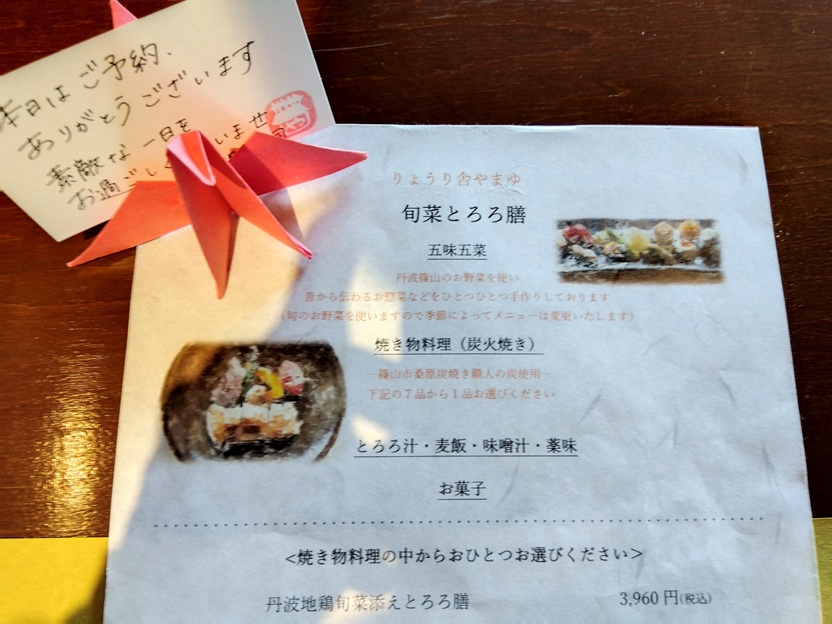 本日はご予約
ありがとうございます
素敵な一日を
お過ごし
りょうり舎やまゆ
旬菜とろろ膳
五味五菜
丹波篠山のお野菜を使い
昔から伝わるお惣菜などをひとつひとつ手作りしております
(旬のお野菜を使いますので季節によってメニューは変更いたします)
焼き物料理（炭火焼き）
―篠山市桑原炭焼き職人の炭使用―
下記の7品から1品お選びください
とろろ汁・麦飯・味噌汁・薬味
お菓子
<焼き物料理の中からおひとつお選びください>
丹波地鶏旬菜添えとろろ膳 3,960円(税込)